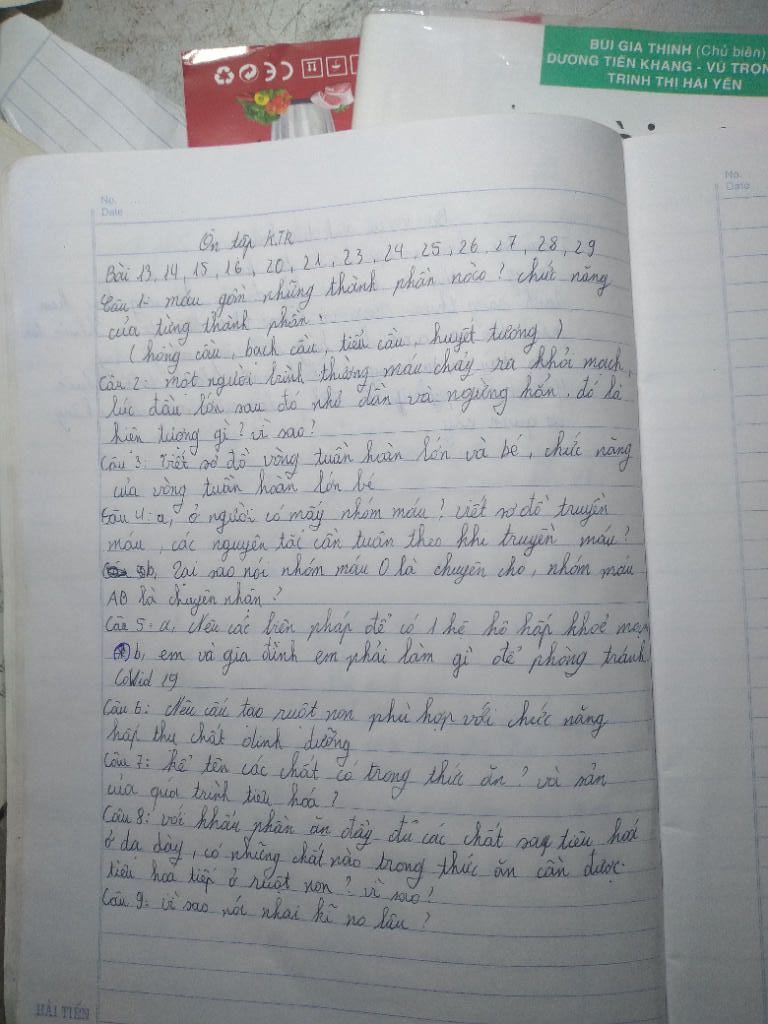 BÙI GIA THỊNH (Chủ biên)
DƯƠNG TIẾN KHANG - VŨ TRỌN
TRỊNH THỊ HẢI YẾN
No.
Date
No.
Date
Ôn tập KTR
Bài 13, 14, 15, 16, 20, 21, 23, 24, 25, 26, 27, 28, 29
Câu 1: máu gồm những thành phần nào? chức năng
của từng thành phần.
(hồng cầu, bạch cầu, tiểu cầu, huyết tương)
Câu 2: một người bình thường máu chảy ra khỏi mạch,
lúc đầu lớn sau đó nhỏ dần và ngừng hẳn. đó là
hiện tượng gì? vì sao?
Câu 3: Viết sơ đồ vòng tuần hoàn lớn và bé, chức năng
của vòng tuần hoàn lớn bé
Câu 4: a, ở người có mấy nhóm máu? viết sơ đồ truyền
máu, các nguyên tắc cần tuân theo khi truyền máu?
b, Tại sao nói nhóm máu O là chuyên cho, nhóm máu
AB là chuyên nhận?
Câu 5: a, Nêu các biện pháp để có 1 hệ hô hấp khoẻ mạn
b, em và gia đình em phải làm gì để phòng tránh
Covid 19
Câu 6: Nêu cấu tạo ruột non phù hợp với chức năng
hấp thụ chất dinh dưỡng
Câu 7: kể tên các chất có trong thức ăn? và sản
của quá trình tiêu hoá?
Câu 8: với khẩu phần ăn đầy đủ các chất sau tiêu hoá
ở dạ dày, có những chất nào trong thức ăn cần được
tiêu hoá tiếp ở ruột non? vì sao?
Câu 9: vì sao nói nhai kĩ no lâu?
HẢI TIẾN